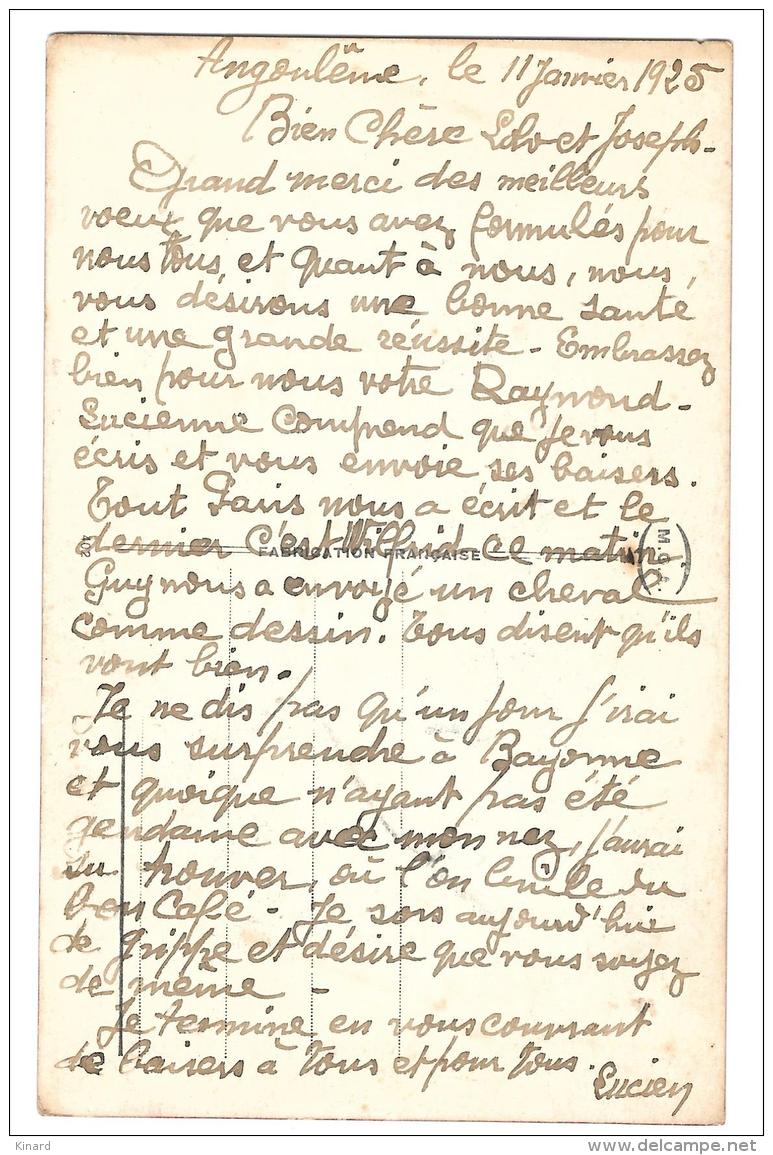 Angoulême, le 11 Janvier 1925
Bien Chère Lolo et Joseph-
Grand merci des meilleurs
voeux que vous avez formulés pour
nous tous, et quant à nous, nous,
vous désirons une bonne santé
et une grande réussite - Embrassez
bien pour nous votre Raymond -
Lucienne comprend que je vous
écris et vous envoie ses baisers.
Tout Paris nous a écrit et le
dernier c'est Wilfrid ce matin.
FABRICATION FRANÇAISE
Guy nous a envoyé un cheval
comme dessin. Tous disent qu'ils
vont bien.
Je ne dis pas qu'un jour j'irai
vous surprendre à Bayonne
et quoique n'ayant pas été
gendarme avec mon nez, j'aurai
su trouver, où l'on brûle du
bon Café - Je sors aujourd'hui
de grippe et désire que vous soyez
de même -
Je termine en vous couvrant
de baisers à tous et pour tous.
Lucien
Kinard
delcampe.net